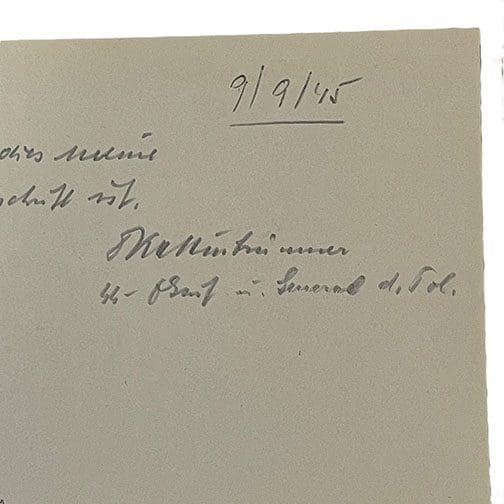 9/9/45
dies meine
schrift ist.
Dr Kaltenbrunner
SS-Ogruf u. General d. Pol.